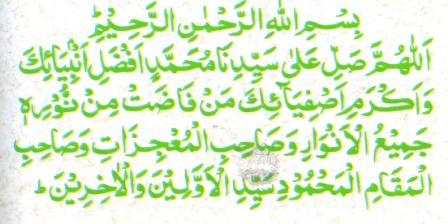 بِسْمِ اللهِ الرَّحْمٰنِ الرَّحِيْمِ
اَللّٰهُمَّ صَلِّ عَلٰى سَيِّدِنَا مُحَمَّدٍ اَفْضَلِ اَنْۢبِيَائِكَ
وَاَكْرَمِ اَصْفِيَائِكَ مَنْ فَاضَتْ مِنْ نُّوْرِهٖ
جَمِيْعُ الْاَنْوَارِ وَصَاحِبِ الْمُعْجِزَاتِ وَصَاحِبِ
الْمَقَامِ الْمَحْمُوْدِ سَيِّدِ الْاَوَّلِيْنَ وَالْاٰخِرِيْنَ ؕ